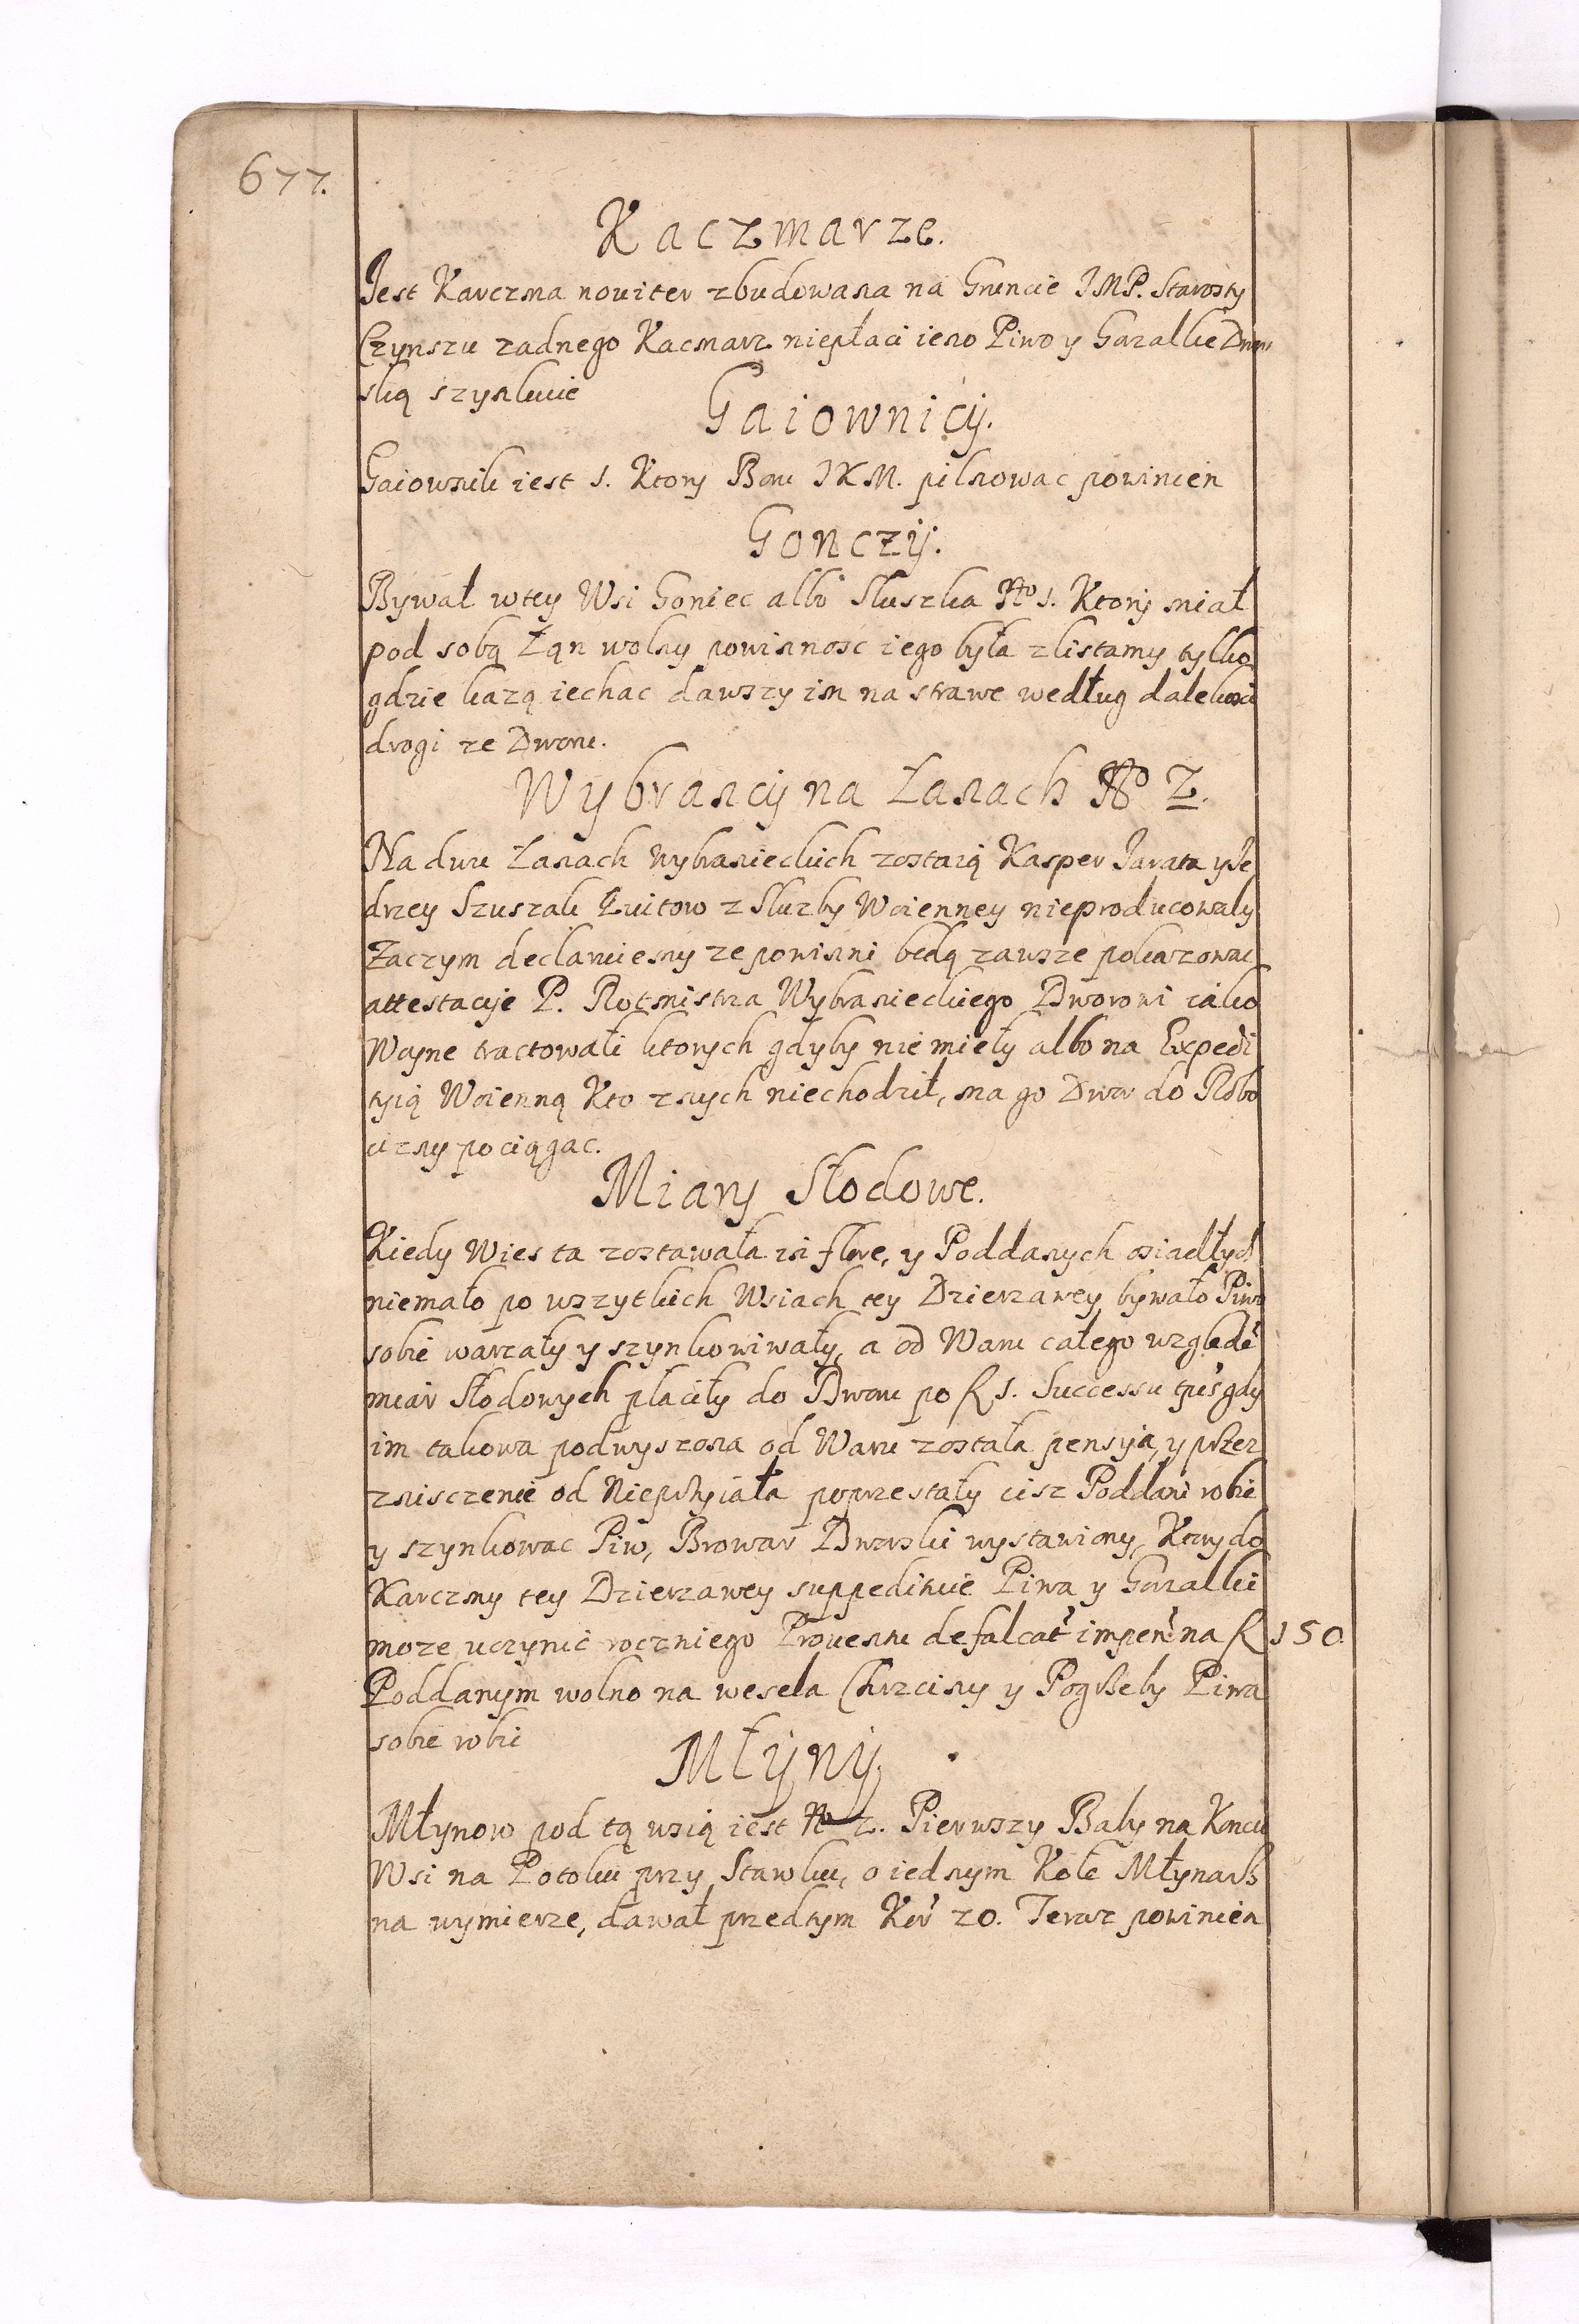 677.
Kaczmarze.
Jest Karczma nouiter zbudowana na Gruncie JMP. Starosty
Czynszu zadnego Kacmarz niepłaci ieno Piwo y Gazalke Dwor
ską szynkuie
Gaiownicy.
Gaiownik iest 1. Ktory Boru JKM. pilnowac powinien
Gonczy.
Bywał w tey Wsi Goniec albo Sluszka No 1. Ktory miał
pod sobą Łąn wolny powinnosc iego była z listamy tylko
gdzie kazą iechac dawszy im na strawe według dalekosci
drogi ze Dworu.
Wybrancy na Łanach No 2.
Na dwu Łanach wybranieckich zostaią Kasper Jarata y Ję
drzey Szuszak Kwitow z Sluzby Woienney nieprodukowaly
Zaczym declaruiemy ze powinni bedą zawsze pokazowac
attestacye P. Rotmistrza Wybranieckiego Dworowi iako
Woyne tractowali ktorych gdyby nie miely albo na Expedi
tyią Woienną Kto z nych niechodził, ma go Dwor do Robo
cizny pociągac.
Miary Słodowe.
Kiedy Wies ta zostawała in flore, y Poddanych osiadłych
niemało po wszytkich Wsiach tey Dzierzawey bywało Piwo
sobie warzały y szynkowiwały, a od Waru całego wzglede
miar Słodowych płaciły do Dworu po f 1. Successu tpis gdy
im takowa podwyszona od Waru została pensyia, y przez
zniszczenie od Niepŕzyiała poprzestały cisz Poddani robic
y szynkowac Piw, Browar Dworski wystawiony, Ktory do
Karczmy tey Dzierzawey suppedituie Piwa y Gazalki
moze uczynic roczniego Prouentu defalcat impen na f 150.
Poddanym wolno na wesela Chrzciny y Pogrzeby Piwa
sobie robic
Młyny.
Młynow pod tą wsią iest No 2. Pierwszy Baly na Koncu
Wsi na Potoku przy Stawku, o iednym Kole Młynarz
na wymierze, dawał przedtym Kor 20. Teraz powinien